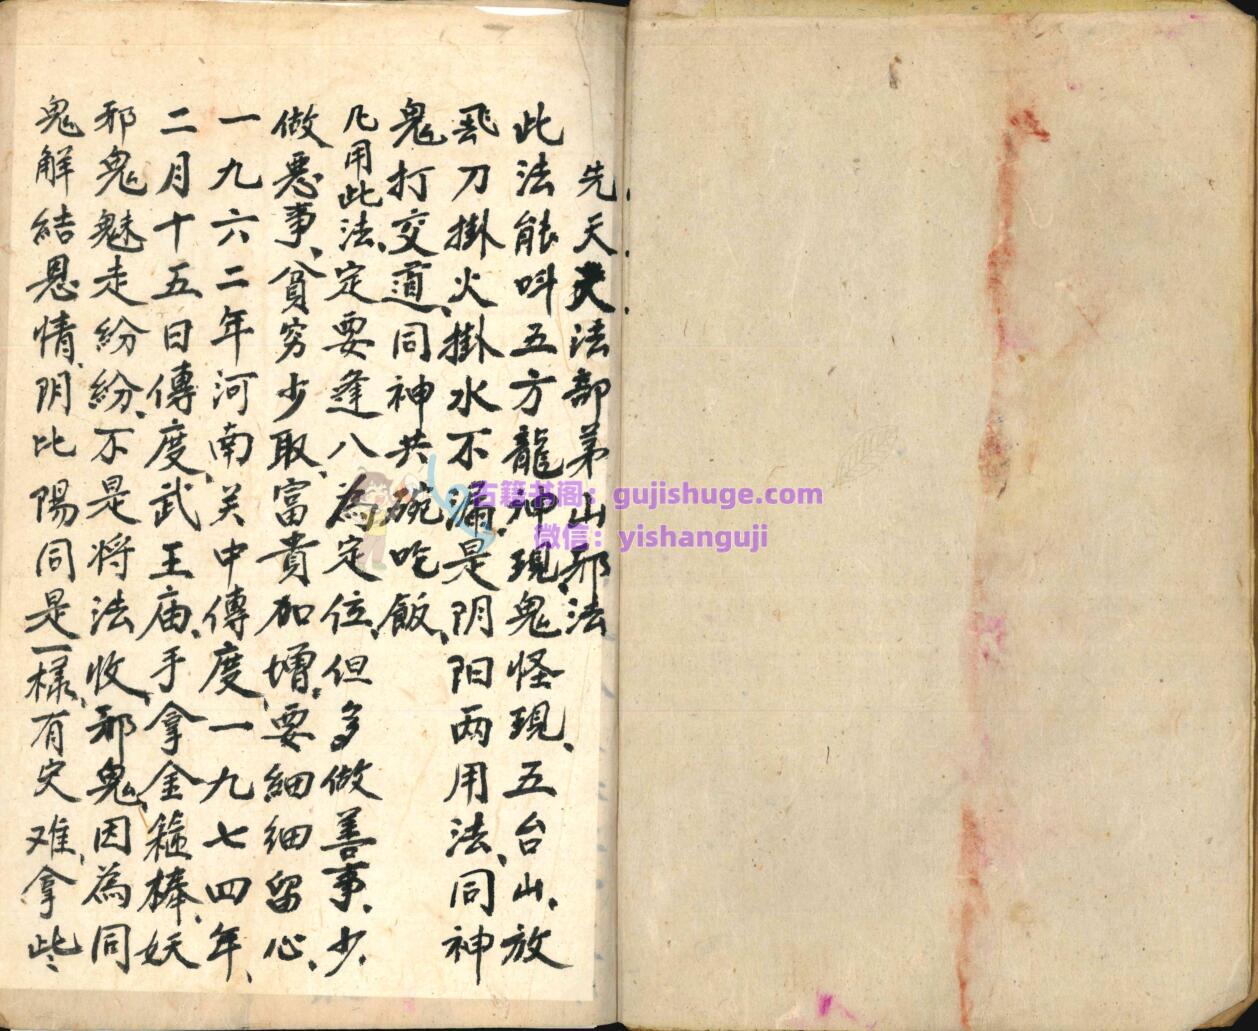 先天天法部弟山邪法
此法能叫五方龍神現、鬼怪現、五台山、放
飛刀掛火、掛水不漏、是阴阳两用法、同神
鬼打交道、同神共碗吃飯、
凡用此法、定要逢八為定位、但多做善事、少
做惡事、貧穷少取、富貴加增、要細細留心、
一九六二年河南关中傳度、一九七四年、
二月十五日傳度、武王庙、手拿金箍棒、妖
邪鬼魅走紛紛、不是将法收、邪鬼、因為同
鬼解結恩情、阴比陽同是一樣、有灾难、拿些
古籍书阁：gujishuge.com
微信：yishanguji